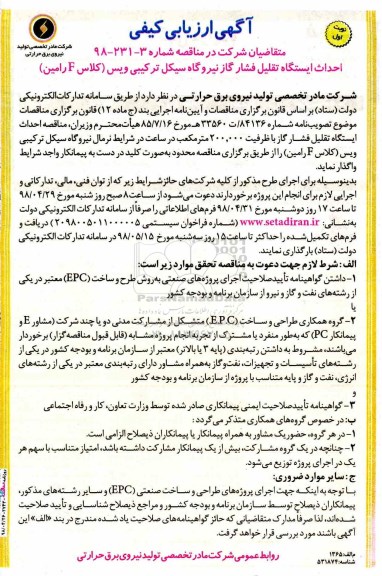 نوبت اول
آگهی ارزیابی کیفی
شرکت مادر تخصصی تولید
نیروی برق حرارتی
متقاضیان شرکت در مناقصه شماره ۳-۲۳۱-۹۸
احداث ایستگاه تقلیل فشار گاز نیروگاه سیکل ترکیبی ویس (کلاس F رامین)
شرکت مادر تخصصی تولید نیروی برق حرارتی در نظر دارد از طریق سامانه تدارکات الکترونیکی
دولت (ستاد) بر اساس قانون برگزاری مناقصات و آیین‌نامه اجرایی بند (ج ماده ۱۲) قانون برگزاری مناقصات
موضوع تصویب‌نامه شماره ۸۴۱۳۶/ت ۳۳۵۶۰ هـ مورخ ۸۵/۷/۱۶ هیأت محترم وزیران، مناقصه احداث
ایستگاه تقلیل فشار گاز با ظرفیت ۲۰۰،۰۰۰ مترمکعب در ساعت در شرایط نرمال نیروگاه سیکل ترکیبی
ویس (کلاس F رامین) را از طریق برگزاری مناقصه محدود به‌صورت کلید در دست به پیمانکار واجد شرایط
واگذار نماید.
بدینوسیله برای اجرای طرح مذکور از کلیه شرکت‌های حائز شرایط زیر که از توان فنی، مالی، تدارکاتی و
اجرایی لازم برای انجام این پروژه برخوردارند دعوت می‌شود از ساعت ۸ صبح روز شنبه مورخ ۹۸/۰۴/۲۹
تا ساعت ۱۷ روز دوشنبه مورخ ۹۸/۰۴/۳۱ فرم‌های اطلاعاتی را صرفاً از سامانه تدارکات الکترونیکی دولت
به‌نشانی: www.setadiran.ir (شماره فراخوان سیستمی ۲۰۹۸۰۰۵۰۱۱۰۰۰۰۰۵) دریافت و
فرم‌های تکمیل‌شده را حداکثر تا ساعت ۱۵ روز سه‌شنبه مورخ ۹۸/۰۵/۱۵ در سامانه تدارکات الکترونیکی
دولت (ستاد) بارگذاری نمایند.
الف: شرط لازم جهت دعوت به مناقصه تحقق موارد زیر است:
۱- داشتن گواهینامه تأیید صلاحیت اجرای پروژه‌های صنعتی به‌روش طرح و ساخت (EPC) معتبر در یکی
از رشته‌های نفت و گاز و نیرو از سازمان برنامه و بودجه کشور
یا
۲- گروه همکاری طراحی و ساخت (E.P.C) متشکل از مشارکت مدنی دو یا چند شرکت (مشاور E و
پیمانکار PC) که به‌طور منفرد یا مشترک از تجربه انجام پروژه مشابه (قابل قبول مناقصه‌گزار) برخوردار
می‌باشند، مشروط به داشتن رتبه‌بندی (پایه ۳ یا بالاتر) معتبر از سازمان برنامه و بودجه کشور در یکی از
رشته‌های تأسیسات و تجهیزات، نفت و گاز به‌همراه مشاور دارای رتبه‌بندی معتبر در یکی از رشته‌های
انرژی، نفت و گاز و پایه متناسب با پروژه از سازمان برنامه و بودجه کشور
و
۳- گواهینامه تأیید صلاحیت ایمنی پیمانکاری صادر شده توسط وزارت تعاون، کار و رفاه اجتماعی
ب: در خصوص گروه‌های همکاری متذکر می‌گردد:
۱- در هر گروه، حضور یک مشاور به همراه پیمانکار یا پیمانکاران ذیصلاح الزامی است.
۲- چنانچه در یک گروه مشارکت، بیش از یک پیمانکار مشارکت داشته باشد، امتیاز متناسب با سهم هر
یک در اجرای پروژه توزیع می‌شود.
ج: سایر موارد ضروری:
با توجه به اینکه جهت اجرای پروژه‌های طراحی و ساخت صنعتی (EPC) و سایر رشته‌های مذکور،
پیمانکاران ذیصلاح توسط سازمان برنامه و بودجه کشور و مراجع ذیصلاح شناسایی و تأیید صلاحیت
شده‌اند، لذا صرفاً مدارک متقاضیانی که حائز گواهینامه‌های صلاحیت یاد شده مندرج در بند «الف» این
آگهی باشند مورد بررسی قرار خواهد گرفت.
م الف: ۱۳۶۵
شناسه: ۵۳۱۸۷۴
روابط عمومی شرکت مادر تخصصی تولید نیروی برق حرارتی